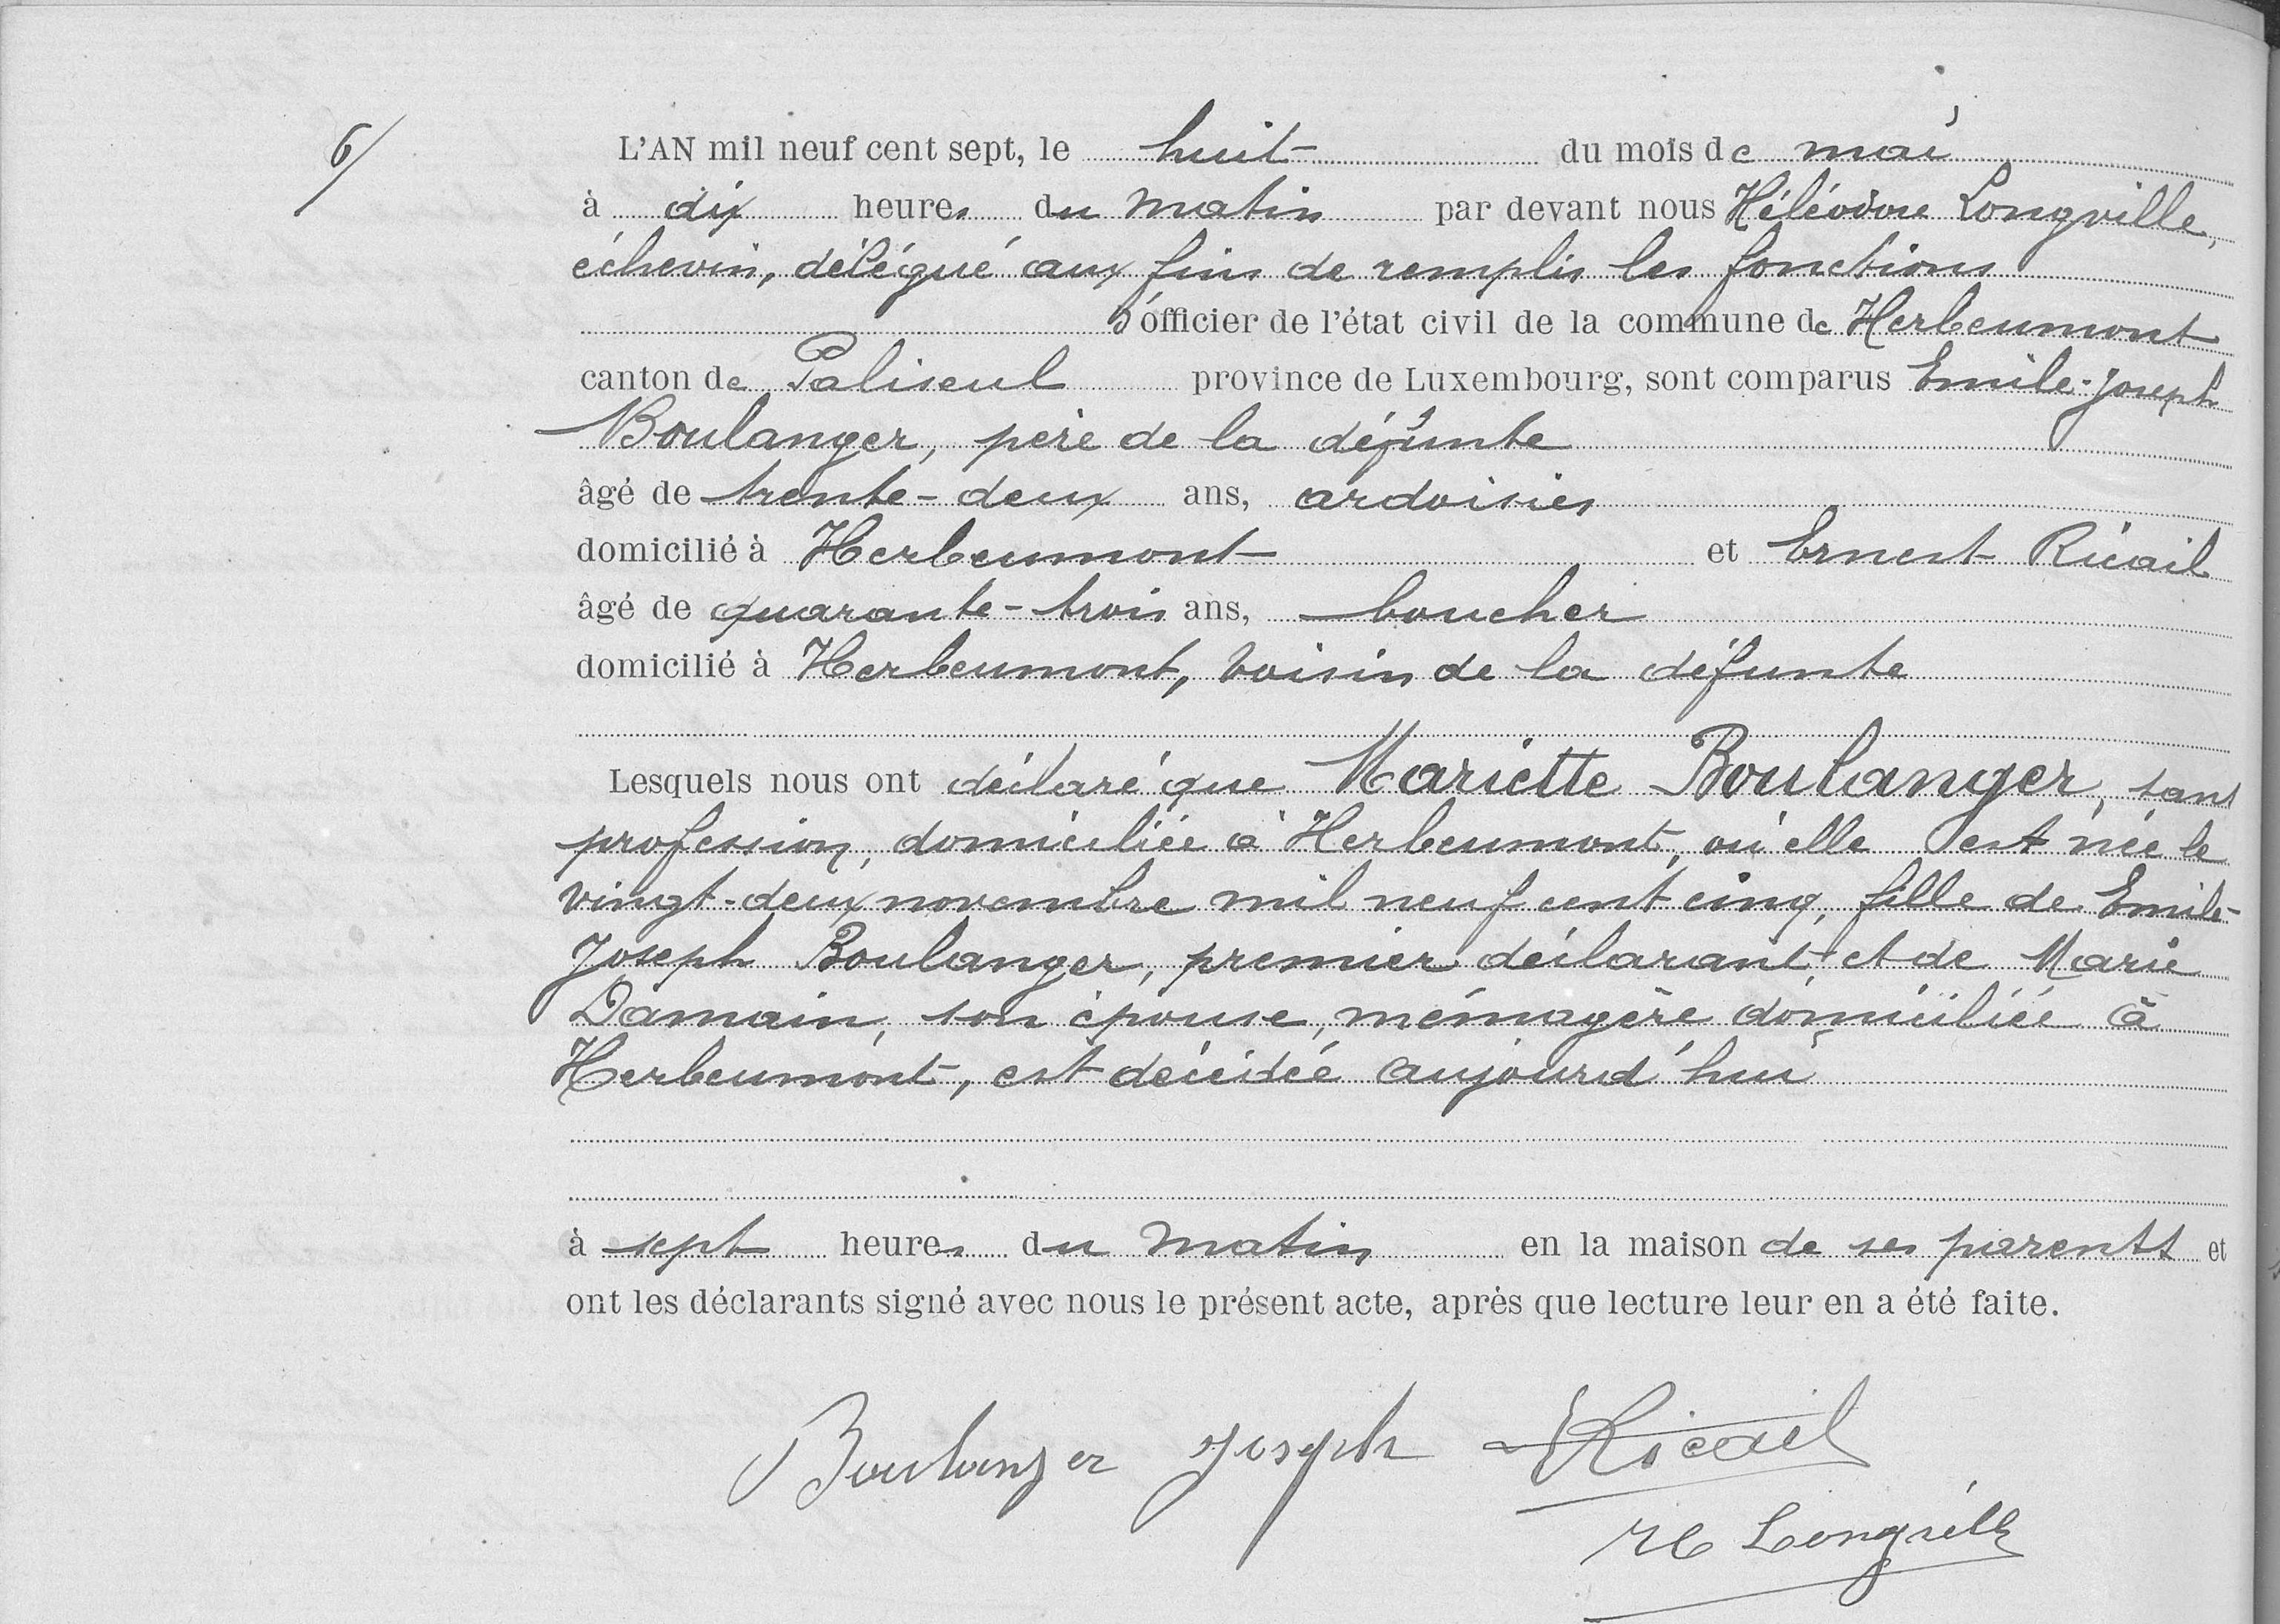 6/
L'AN mil neuf cent sept, le huit du mois de mai
à dix heures du matin par devant nous Héléodore Longville,
échevin, délégué aux fins de remplir les fonctions
d'officier de l'état civil de la commune de Herbeumont
canton de Paliseul province de Luxembourg, sont comparus Emile-Joseph
Boulanger, père de la défunte
âgé de trente-deux ans, ardoisier
domicilié à Herbeumont et Ernest Ricail
âgé de quarante-trois ans, boucher
domicilié à Herbeumont, voisin de la défunte
Lesquels nous ont déclaré que Mariette Boulanger, sans
profession, domiciliée à Herbeumont, où elle est née le
vingt-deux novembre mil neuf cent cinq, fille de Emile-
Joseph Boulanger, premier déclarant et de Marie
Damain, son épouse, ménagère domiciliée à
Herbeumont, est décédée aujourd'hui
à sept heures du matin en la maison de ses parents et
ont les déclarants signé avec nous le présent acte, après que lecture leur en a été faite.
Boulanger Joseph ERicail
H Longville